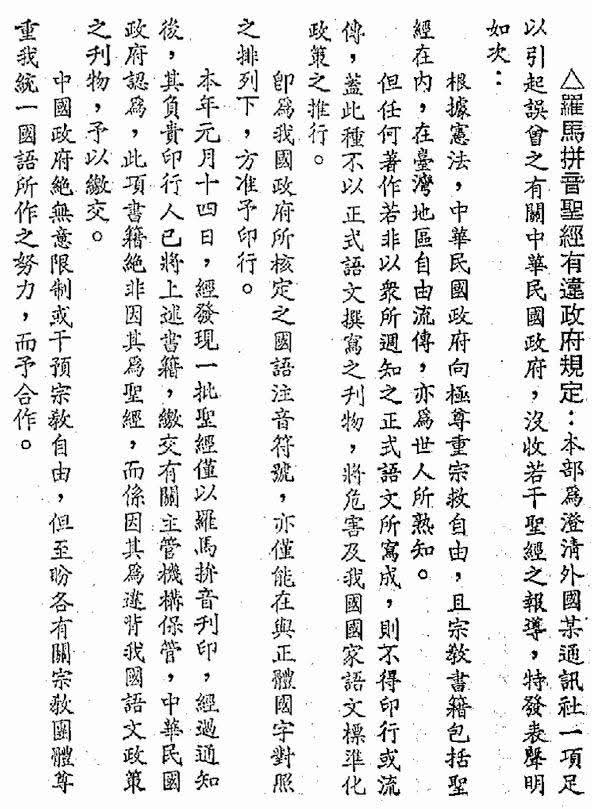 △羅馬拼音聖經有違政府規定：本部為澄清外國某通訊社一項足
以引起誤會之有關中華民國政府，沒收若干聖經之報導，特發表聲明
如次：
根據憲法，中華民國政府向極尊重宗教自由，且宗教書籍包括聖
經在內，在臺灣地區自由流傳，亦為世人所熟知。
但任何著作若非以衆所週知之正式語文所寫成，則不得印行或流
傳，蓋此種不以正式語文撰寫之刊物，將危害及我國國家語文標準化
政策之推行。
卽為我國政府所核定之國語注音符號，亦僅能在與正體國字對照
之排列下，方准予印行。
本年元月十四日，經發現一批聖經僅以羅馬拼音刊印，經過通知
後，其負責印行人已將上述書籍，繳交有關主管機構保管，中華民國
政府認為，此項書籍絕非因其為聖經，而係因其為違背我國語文政策
之刊物，予以繳交。
中國政府絕無意限制或干預宗教自由，但至盼各有關宗教團體尊
重我統一國語所作之努力，而予合作。